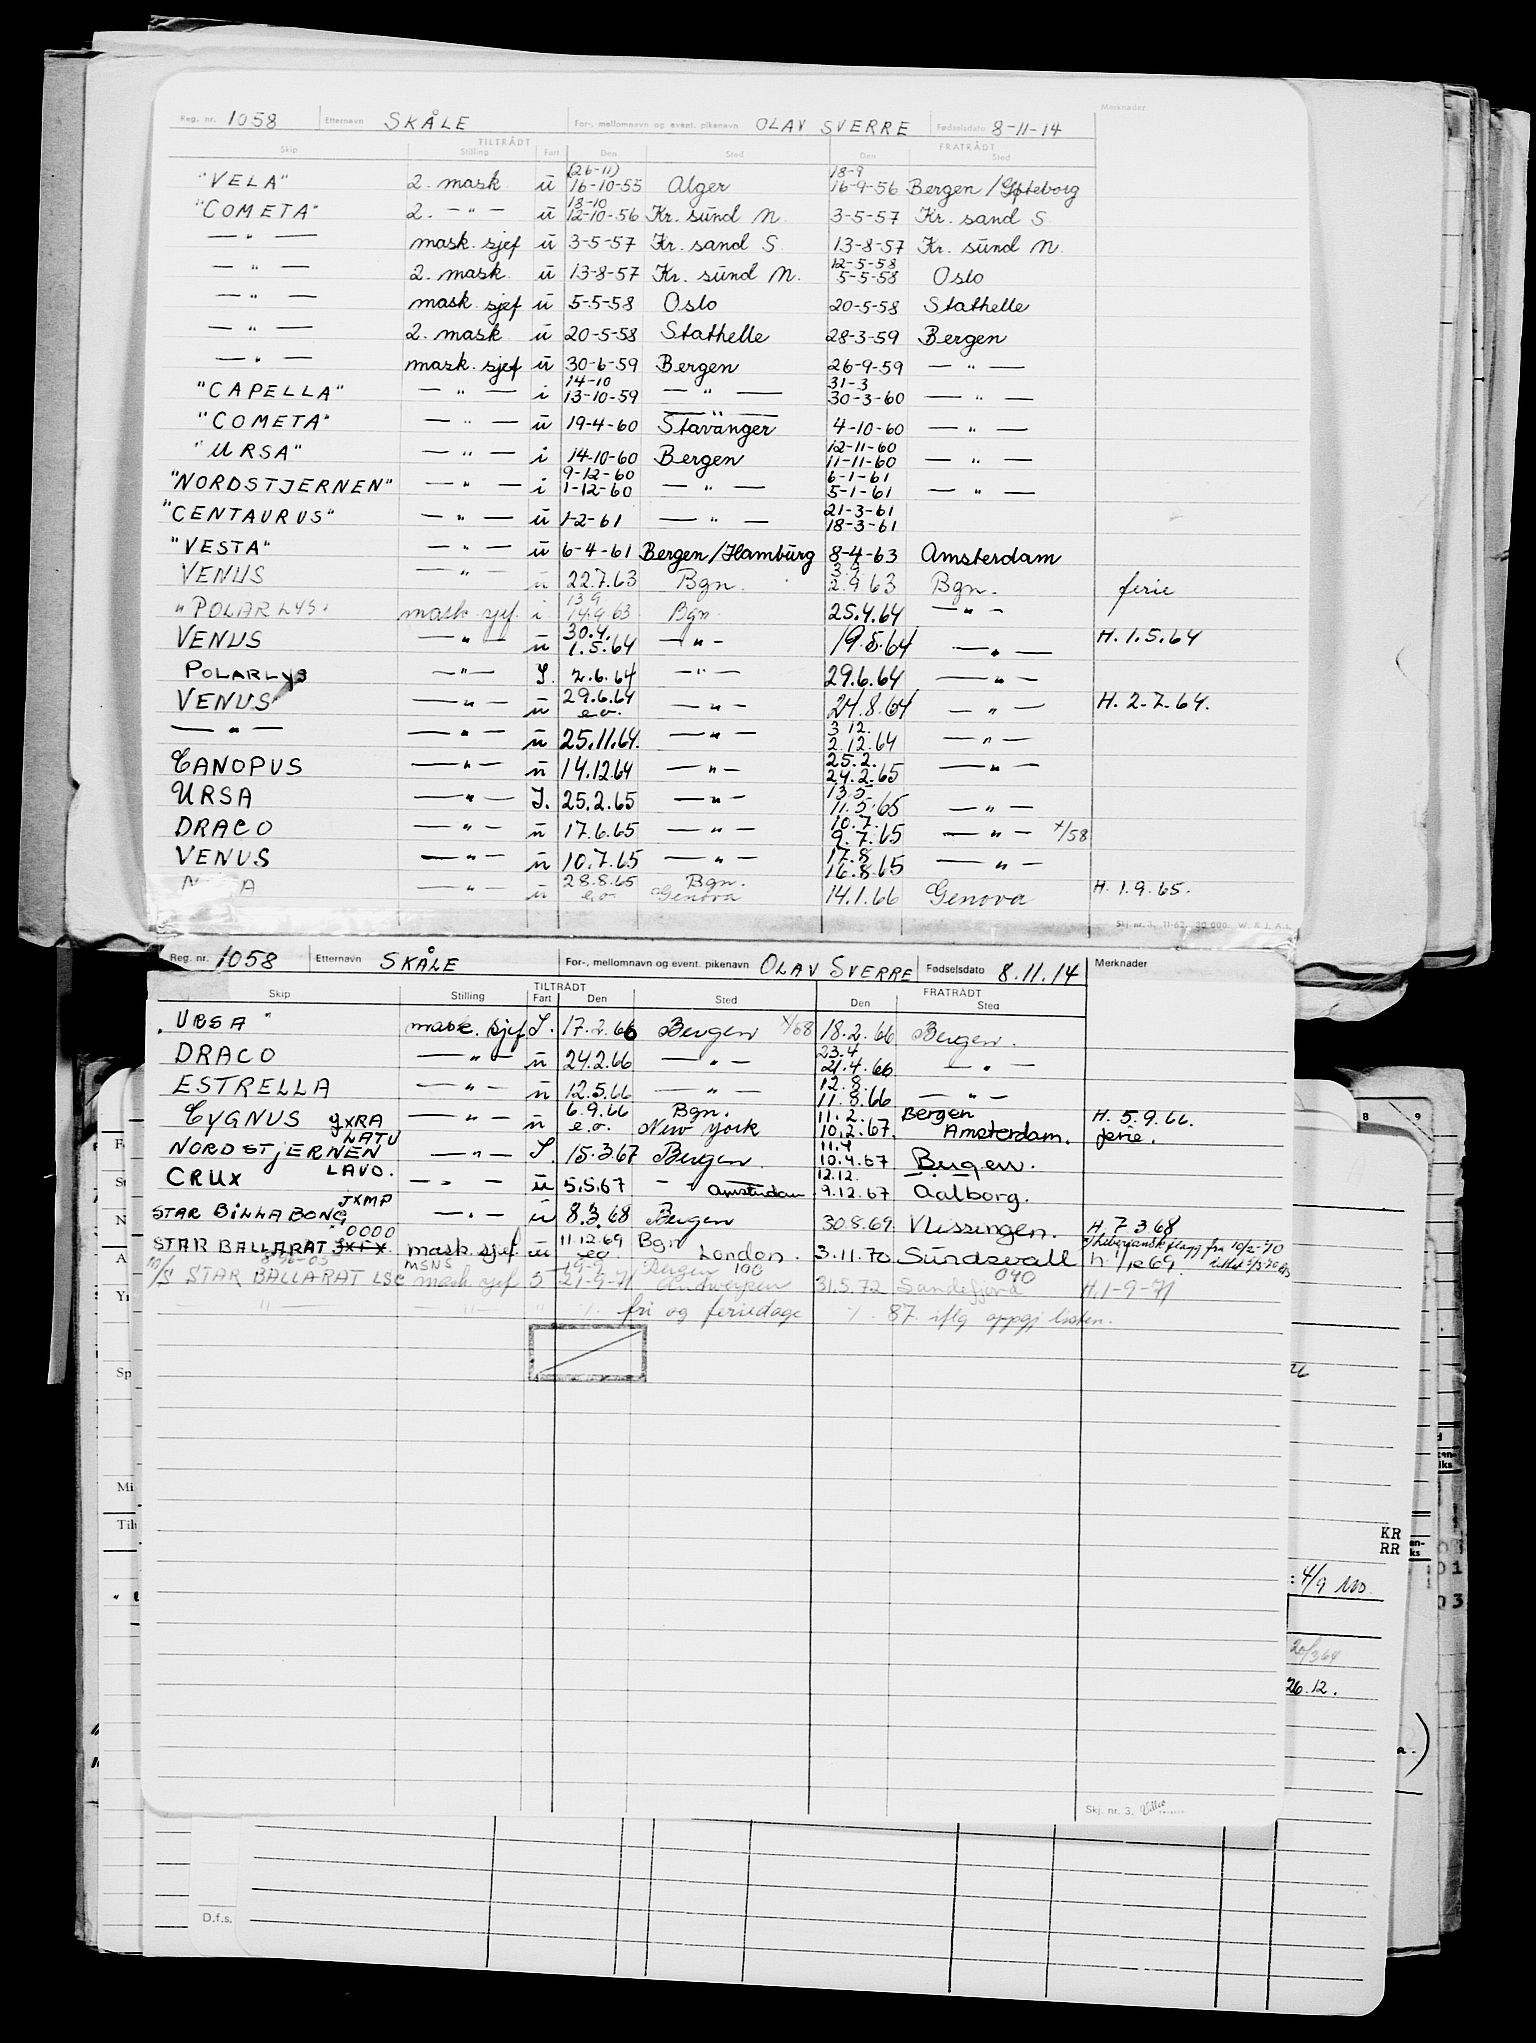 Merknader
Reg. nr. 1058 Etternavn SKÅLE For-, mellomnavn og event. pikenavn OLAV SVERRE Fødselsdato 8-11-14
TILTRÅDT FRATRÅDT
Skip Stilling Fart Den Sted Den Sted
(26-11) 18-9
"VELA" 2. mask ü 16-10-55 Alger 16-9-56 Bergen / Gøteborg
18-10
"COMETA" 2. — " — ü 12-10-56 Kr. sünd N. 3-5-57 Kr. sand S
— " — mask. sjef ü 3-5-57 Kr. sand S 13-8-57 Kr. sünd N.
12-5-58
— " — 2. mask ü 13-8-57 Kr. sünd N. 5-5-58 Oslo
— " — mask. sjef ü 5-5-58 Oslo 20-5-58 Stathelle
— " — 2. mask ü 20-5-58 Stathelle 28-3-59 Bergen
— " — mask. sjef ü 30-6-59 Bergen 26-9-59 — " —
14-10 31-3
"CAPELLA" — " — i 13-10-59 — " — 30-3-60 — " —
"COMETA" — " — ü 19-4-60 Stavanger 4-10-60 — " —
12-11-60
"URSA" — " — i 14-10-60 Bergen 11-11-60 — " —
9-12-60 6-1-61
"NORDSTJERNEN" — " — i 1-12-60 — " — 5-1-61 — " —
21-3-61
"CENTAURUS" — " — ü 1-2-61 — " — 18-3-61
"VESTA" — " — ü 6-4-61 Bergen/Hambürg 8-4-63 Amsterdam
3.9
VENUS — " — ü 22.7.63 Bgn. 2.9 63 Bgn. ferie
13 9
"POLARLYS" mask. sjef. i 14.9 63 Bgn 25.4.64 — " —
30.4.
VENUS — " — ü 1.5.64 — " — 19.5.64 — " — H. 1.5.64
POLARLYS — " — I. 2.6.64 — " — 29.6.64 — " —
29.6.64
VENUS — " — ü e.o. — " — 24.8.64 — " — H. 2.7.64.
3 12.
— " — — " — ü 25.11.64. — " — 2.12.64 — " —
25.2.
CANOPUS — " — ü 14.12.64 — " — 24.2.65 — " —
13.5
URSA — " — I. 25.2.65 — " — 11.5.65 — " —
10.7.
DRACO — " — ü 17.6.65 — " — 9.7.65 — " — x/58
17.8
VENUS — " — ü 10.7.65 — " — 16.8.65 — " —
28.8.65 Bgn.
— " — ü e.o. Genova 14.1.66 Genova H. 1.9.65.
Skj. nr. 3. 11-62. 30 000. W. & J. A.s
Reg. nr. 1058 Etternavn SKÅLE For-, mellomnavn og event. pikenavn OLAV SVERRE Fødselsdato 8.11.14 Merknader
TILTRÅDT FRATRÅDT
Skip Stilling Fart Den Sted Den Sted
"URSA" mask. sjef I. 17.2.66 Bergen x/68 18.2.66 Bergen.
23.4
DRACO — " — ü 24.2.66 — " — 21.4.66 — " —
12.8.
ESTRELLA — " — ü 12.5.66 — " — 11.8.66 — " —
6.9.66 Bgn. 11.2. Bergen H. 5.9.66.
CYGNUS JXRA — " — ü e.o. New York 10.2.67. Amsterdam. ferie.
LATU 11.4
NORDSTJERNEN — " — I. 15.3.67 Bergen. 10.4.67 Bergen.
LAVO. 12.12.
CRUX — " — ü 5.5.67 — " — Amsterdam 9.12.67 Aalborg.
JXMP
STAR BILLABONG — " — ü 8.3.68 Bergen 30.8.69. Vlissingen. H. 7 3 68
0000 11.12.69 Bgn
STAR BALLARAT mask. sjef ü e.o. London. 3.11.70 Sündsvall
MSNS 19-9 Bergen 100 040
M/S STAR BALLARAT LSC mask. sjef S 21-9-71 Antwerpen 31.5.72 Sandefjord H. 1-9-71
— " — — " — " ./. fri og feriedage ./. 87 iflg oppgj listen.
Skj. nr. 3.
8 9
Sp
Mi
Till
KR
RR
: 4/9
20/3 64
26.12.
D.f.s.